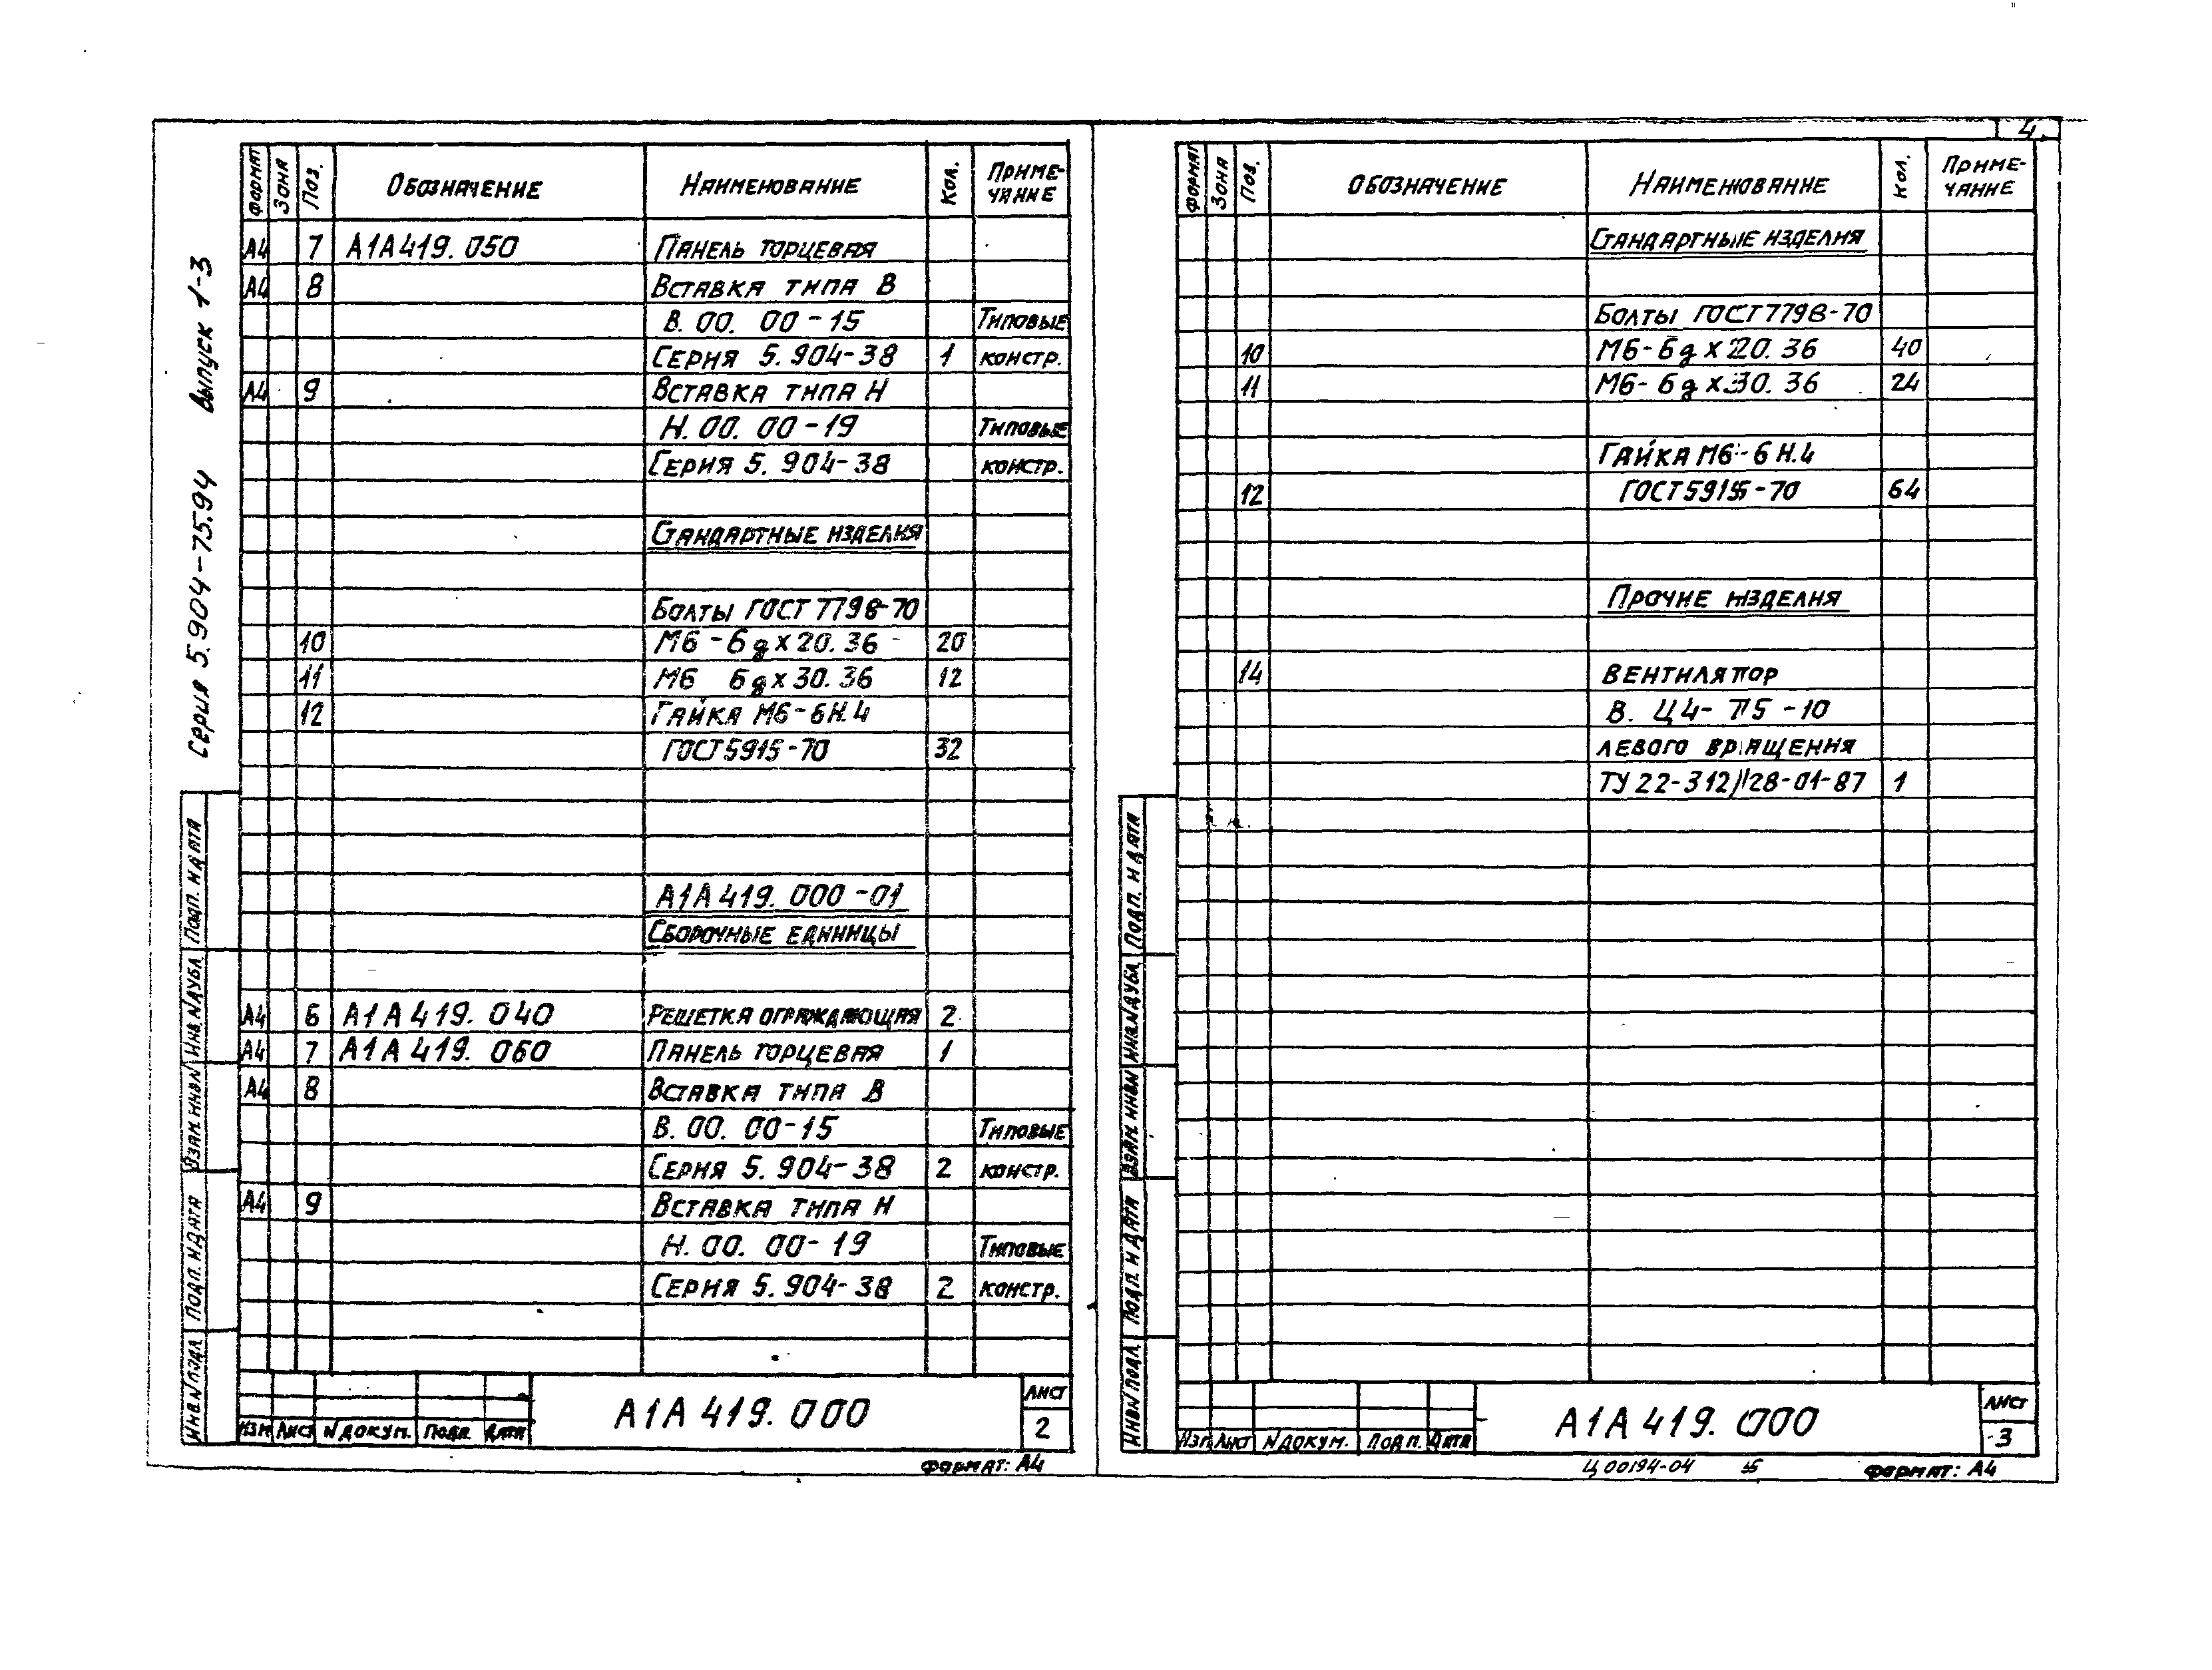 4
Серия 5.904-75.94 Выпуск 1-3
Формат Зона Поз. Обозначение Наименование Кол. Приме-
чание
А4 7 А1А419.050 Панель торцевая
А4 8 Вставка типа В
В.00.00-15 Типовые
Серия 5.904-38 1 констр.
А4 9 Вставка типа Н
Н.00.00-19 Типовые
Серия 5.904-38 констр.
Стандартные изделия
Болты ГОСТ 7798-70
10 М6-6gх20.36 20
11 М6 6gх30.36 12
12 Гайка М6-6Н.4
ГОСТ 5915-70 32
А1А419.000-01
Сборочные единицы
А4 6 А1А419.040 Решетка ограждающая 2
А4 7 А1А419.060 Панель торцевая 1
А4 8 Вставка типа В
В.00.00-15 Типовые
Серия 5.904-38 2 констр.
А4 9 Вставка типа Н
Н.00.00-19 Типовые
Серия 5.904-38 2 констр.
Подп. и дата
Инв.Nдубл
Взам.инвN
Подп. и дата
Инв.Nподл
Изм Лист Nдокум. Подп. Дата
А1А419.000
Лист
2
Формат: А4
Формат Зона Поз. Обозначение Наименование Кол. Приме-
чание
Стандартные изделия
Болты ГОСТ 7798-70
10 М6-6gх20.36 40
11 М6-6gх30.36 24
Гайка М6-6Н.4
12 ГОСТ 5915-70 64
Прочие изделия
14 Вентилятор
В. Ц4-75-10
левого вращения
ТУ 22-312 28-01-87 1
Подп. и дата
Инв.Nдубл
Взам.инвN
Подп. и дата
ИнвN подл.
Изм Лист Nдокум. Подп. Дата
А1А419.000
Лист
3
Ц00194-04 5
Формат: А4